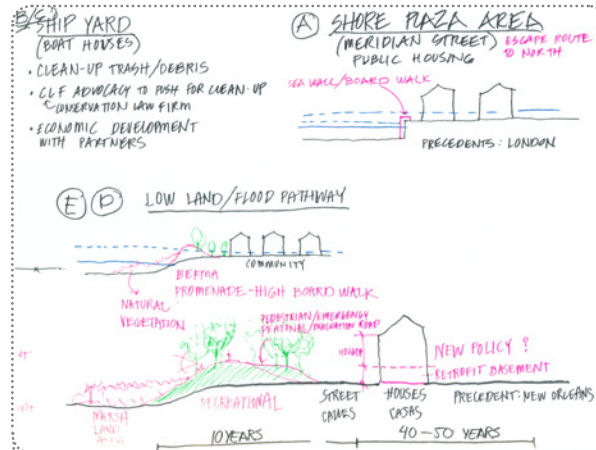 B/C
SHIP YARD
(BOAT HOUSES)
• CLEAN-UP TRASH/DEBRIS
• CLF ADVOCACY TO PUSH FOR CLEAN-UP
CONSERVATION LAW FIRM
• ECONOMIC DEVELOPMENT
WITH PARTNERS
A SHORE PLAZA AREA
(MERIDIAN STREET)
PUBLIC HOUSING
ESCAPE ROUTE
TO NORTH
SEA WALL/BOARD WALK
PRECEDENTS: LONDON
E D LOW LAND/FLOOD PATHWAY
COMMUNITY
BERMA
PROMENADE-HIGH BOARD WALK
NATURAL
VEGETATION
PEDESTRIAN/EMERGENCY
ROAD
HEIGHT
NEW POLICY?
RETROFIT BASEMENT
RECREATIONAL
MARSH
LAND
STREET
HOUSES
CASAS
PRECEDENT: NEW ORLEANS
10 YEARS
40-50 YEARS